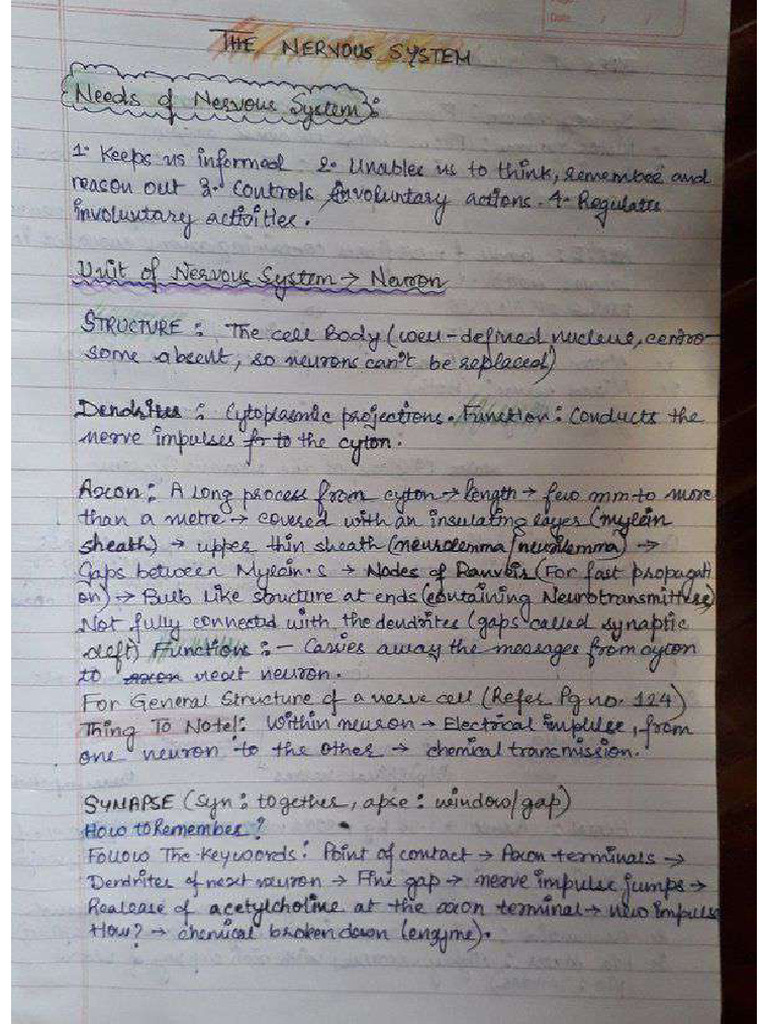 Date / /
THE NERVOUS SYSTEM
Needs of Nervous System:
1. Keeps us informed 2. Unables us to think, remember and
reason out 3. Controls involuntary actions. 4. Regulates
involuntary activities.
Unit of Nervous System → Neuron
STRUCTURE: The cell Body (well-defined nucleus, centro-
some absent, so neurons can't be replaced)
Dendrites: Cytoplasmic projections. Function: Conducts the
nerve impulses to the cyton.
Axon: A long process from cyton → length → few mm to more
than a metre → covered with an insulating layer (mylein
sheath) → upper thin sheath (neurolemma/neurilemma) →
Gaps between Mylein.S → Nodes of Ranveis (For fast propagati
on) → Bulb like structure at ends (containing Neurotransmitters)
Not fully connected with the dendrites (gaps called synaptic
cleft) Functions: - Carries away the messages from cyton
to axon next neuron.
For General Structure of a nerve cell (Refer Pg no. 124)
Thing To Note!: Within neuron → Electrical impulse, from
one neuron to the other → chemical transmission.
SYNAPSE (Syn: together, apse: window/gap)
How to Remember?
Follow The Keywords: Point of contact → Axon terminals →
Dendrites of next neuron → Fine gap → nerve impulse jumps →
Realease of acetylcholine at the axon terminal → new impulse
How? → chemical broken down (enzyme).